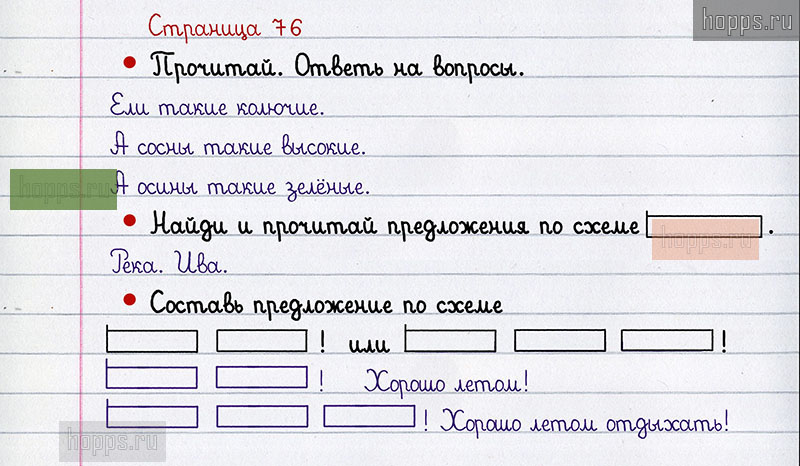 hopps.ru
Страница 76
• Прочитай. Ответь на вопросы.
Ели такие колючие.
А сосны такие высокие.
hopps.ru
А осины такие зелёные.
• Найди и прочитай предложения по схеме .
hopps.ru
Река. Ива.
• Составь предложение по схеме
! или !
! Хорошо летом!
! Хорошо летом отдыхать!
hopps.ru